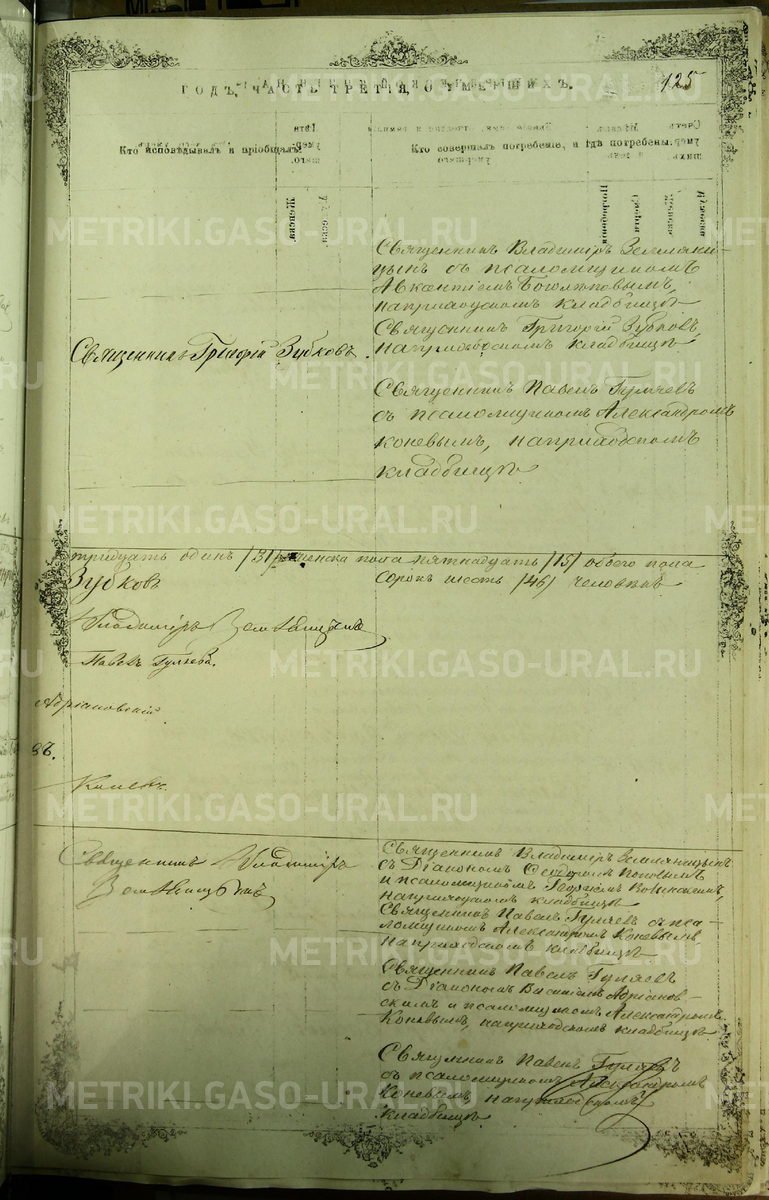 125
ГОДЪ, ЧАСТЬ ТРЕТІЯ, О УМЕРШИХЪ.
Кто исповѣдывалъ и пріобщалъ.
Кто совершалъ погребеніе, и гдѣ погребены.
Священникъ Владиміръ Земляни-
цынъ съ псаломщикомъ
Авксентіемъ Боголюповымъ,
на приходскомъ кладбищѣ
Священникъ Григорій Зубковъ.
Священникъ Григорій Зубковъ,
на приходскомъ кладбищѣ.
Священникъ Павелъ Гуляевъ
съ псаломщикомъ Александромъ
Коневымъ, на приходскомъ
кладбищѣ
тридцать одинъ /31/ женска пола пятнадцать /15/ обоего пола
Зубковъ
сорокъ шесть /46/ человѣкъ
Владиміръ Земляницынъ
Павелъ Гуляевъ.
Адріановскій
въ.
Коневъ.
Священникъ Владиміръ
Земляницынъ
Священникъ Владиміръ Земляницынъ
съ Діакономъ Ѳеодоромъ Поповымъ
и псаломщикомъ Георгіемъ
на приходскомъ кладбищѣ
Священникъ Павелъ Гуляевъ съ пса-
ломщикомъ Александромъ Коневымъ
на приходскомъ кладбищѣ
Священникъ Павелъ Гуляевъ
съ Діакономъ Василіемъ Адріанов-
скимъ и псаломщикомъ Александромъ
Коневымъ, на приходскомъ кладбищѣ.
Священникъ Павелъ Гуляевъ
съ псаломщикомъ Александромъ
Коневымъ на приходскомъ
кладбищѣ
METRIKI.GASO-URAL.RU